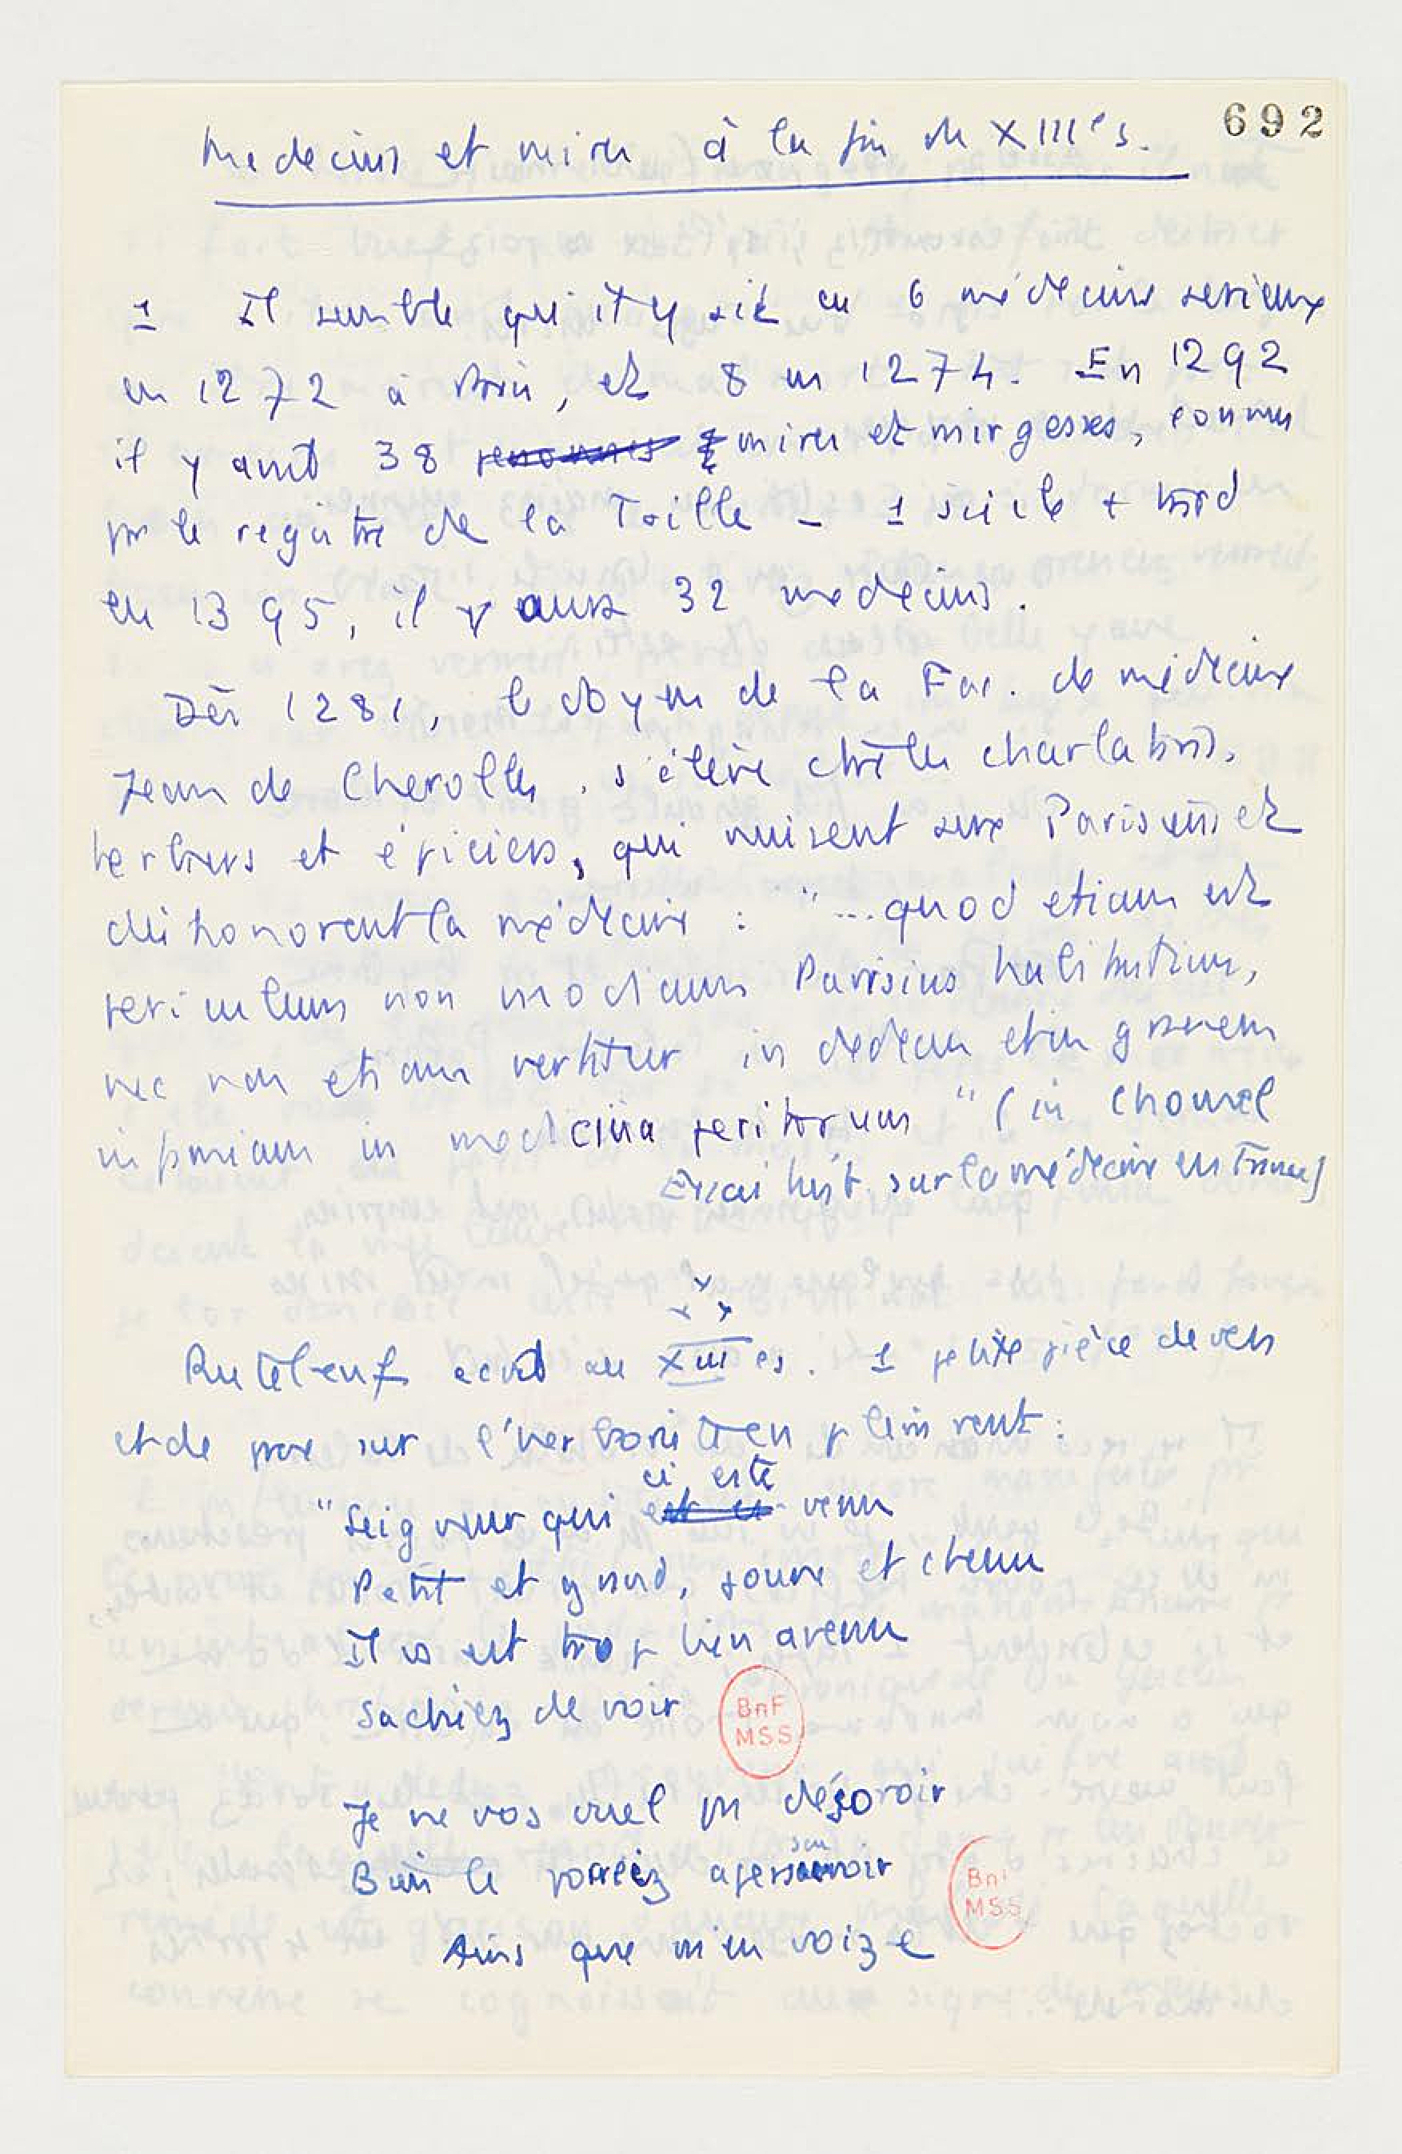 692
Medecins et mires à la fin du XIIIe s.
1 Il semble qu'il y ait eu 6 médecins serieux
en 1272 à Paris, et 8 en 1274. En 1292
il y avait 38 renommés mires et mirgesses, connus
par le registre de la Taille – 1 siècle + tard
en 1395, il y aura 32 medecins.
Dès 1281, le doyen de la Fac. de médecine
Jean de Cherolles, s'élève ctre les charlatans,
herbiers et épiciers, qui nuisent aux Parisiens et
déshonorent la médecine : "...quod etiam est
periculum non modicum Parisius habitantium,
nec non etiam vertitur in dedecus et in gravem
infamiam in medicina peritorum" (in Chomel
Essai hist. sur la médecine en France)
x
x x
Rutebeuf écrit au XIIIe s. 1 petite pièce de vers
et de prose sur l'herboriste en plein vent :
ci este
"Seigneur qui est ci venu
Petit et grand, joune et chenu
Il vos est trop bien avenu
Sachiez de voir
BnF
MSS
Je ne vos vuel pas désovoir
Bien le porreiz apersouvoir
BnF
MSS
Ains que m'en voize